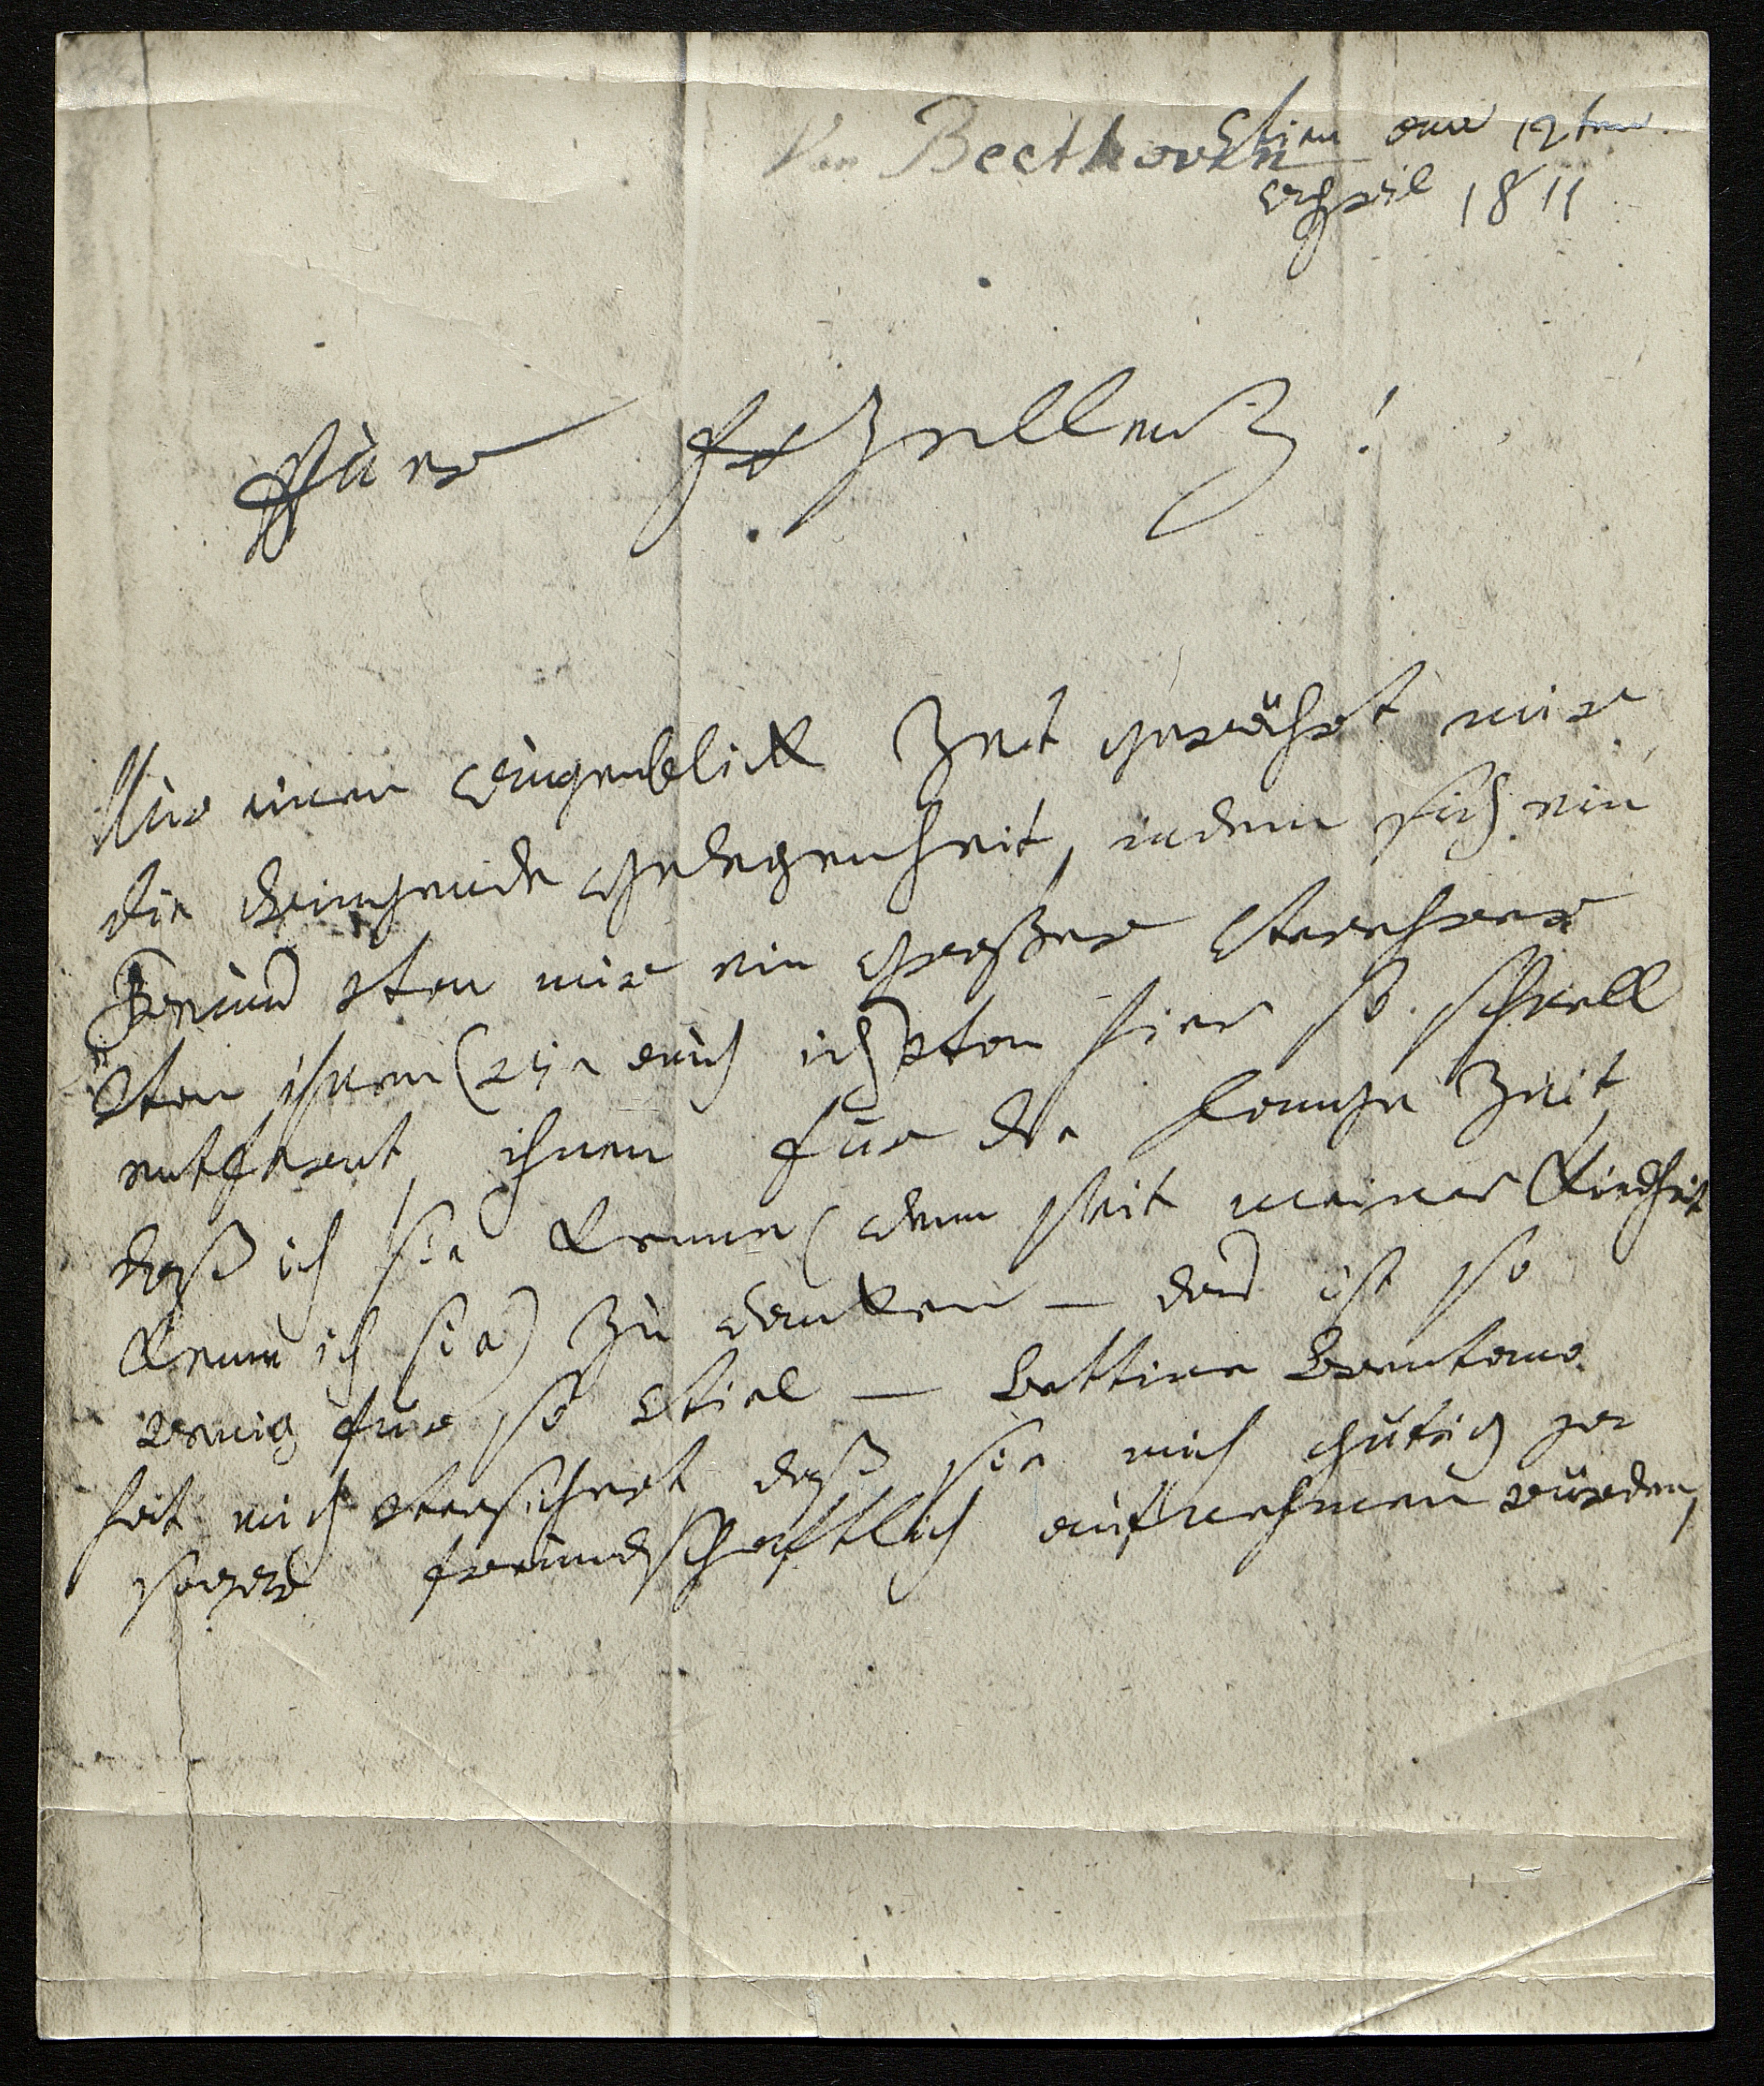 Von Beethoven
Vien am 12ten
April 1811
Euer Exzellenz!
Nur einen Augenblick Zeit gewährt mir
die dringende Gelegenheit, indem sich ein
Freund von mir ein großer Verehrer
von ihnen (wie auch ich) von hier so schnell
entfernt, ihnen für die lange Zeit
daß ich sie kenne (denn seit meiner Kindheit
kenne ich sie) zu danken — das ist so
wenig für so viel — Bettine Brentano
hat mich versichert daß sie mich gütig ja
sogar freundschaftlich aufnehmen würden,